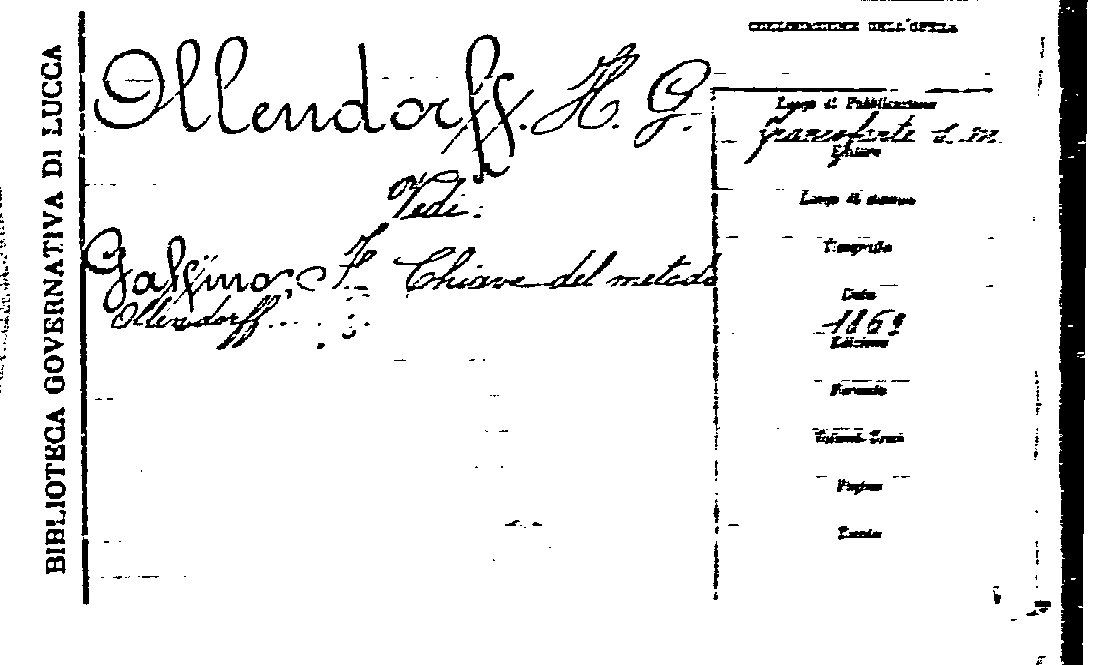 BIBLIOTECA GOVERNATIVA DI LUCCA
Ollendorff. H. G.
Vedi:
F. Chiave del metodo
Ollendorff...
DELL'OPERA
Luogo di Pubblicazione
Francoforte s. m.
Luogo di stampa
Tipografia
Data
1869
Edizione
Formato
Pagine
Tavole